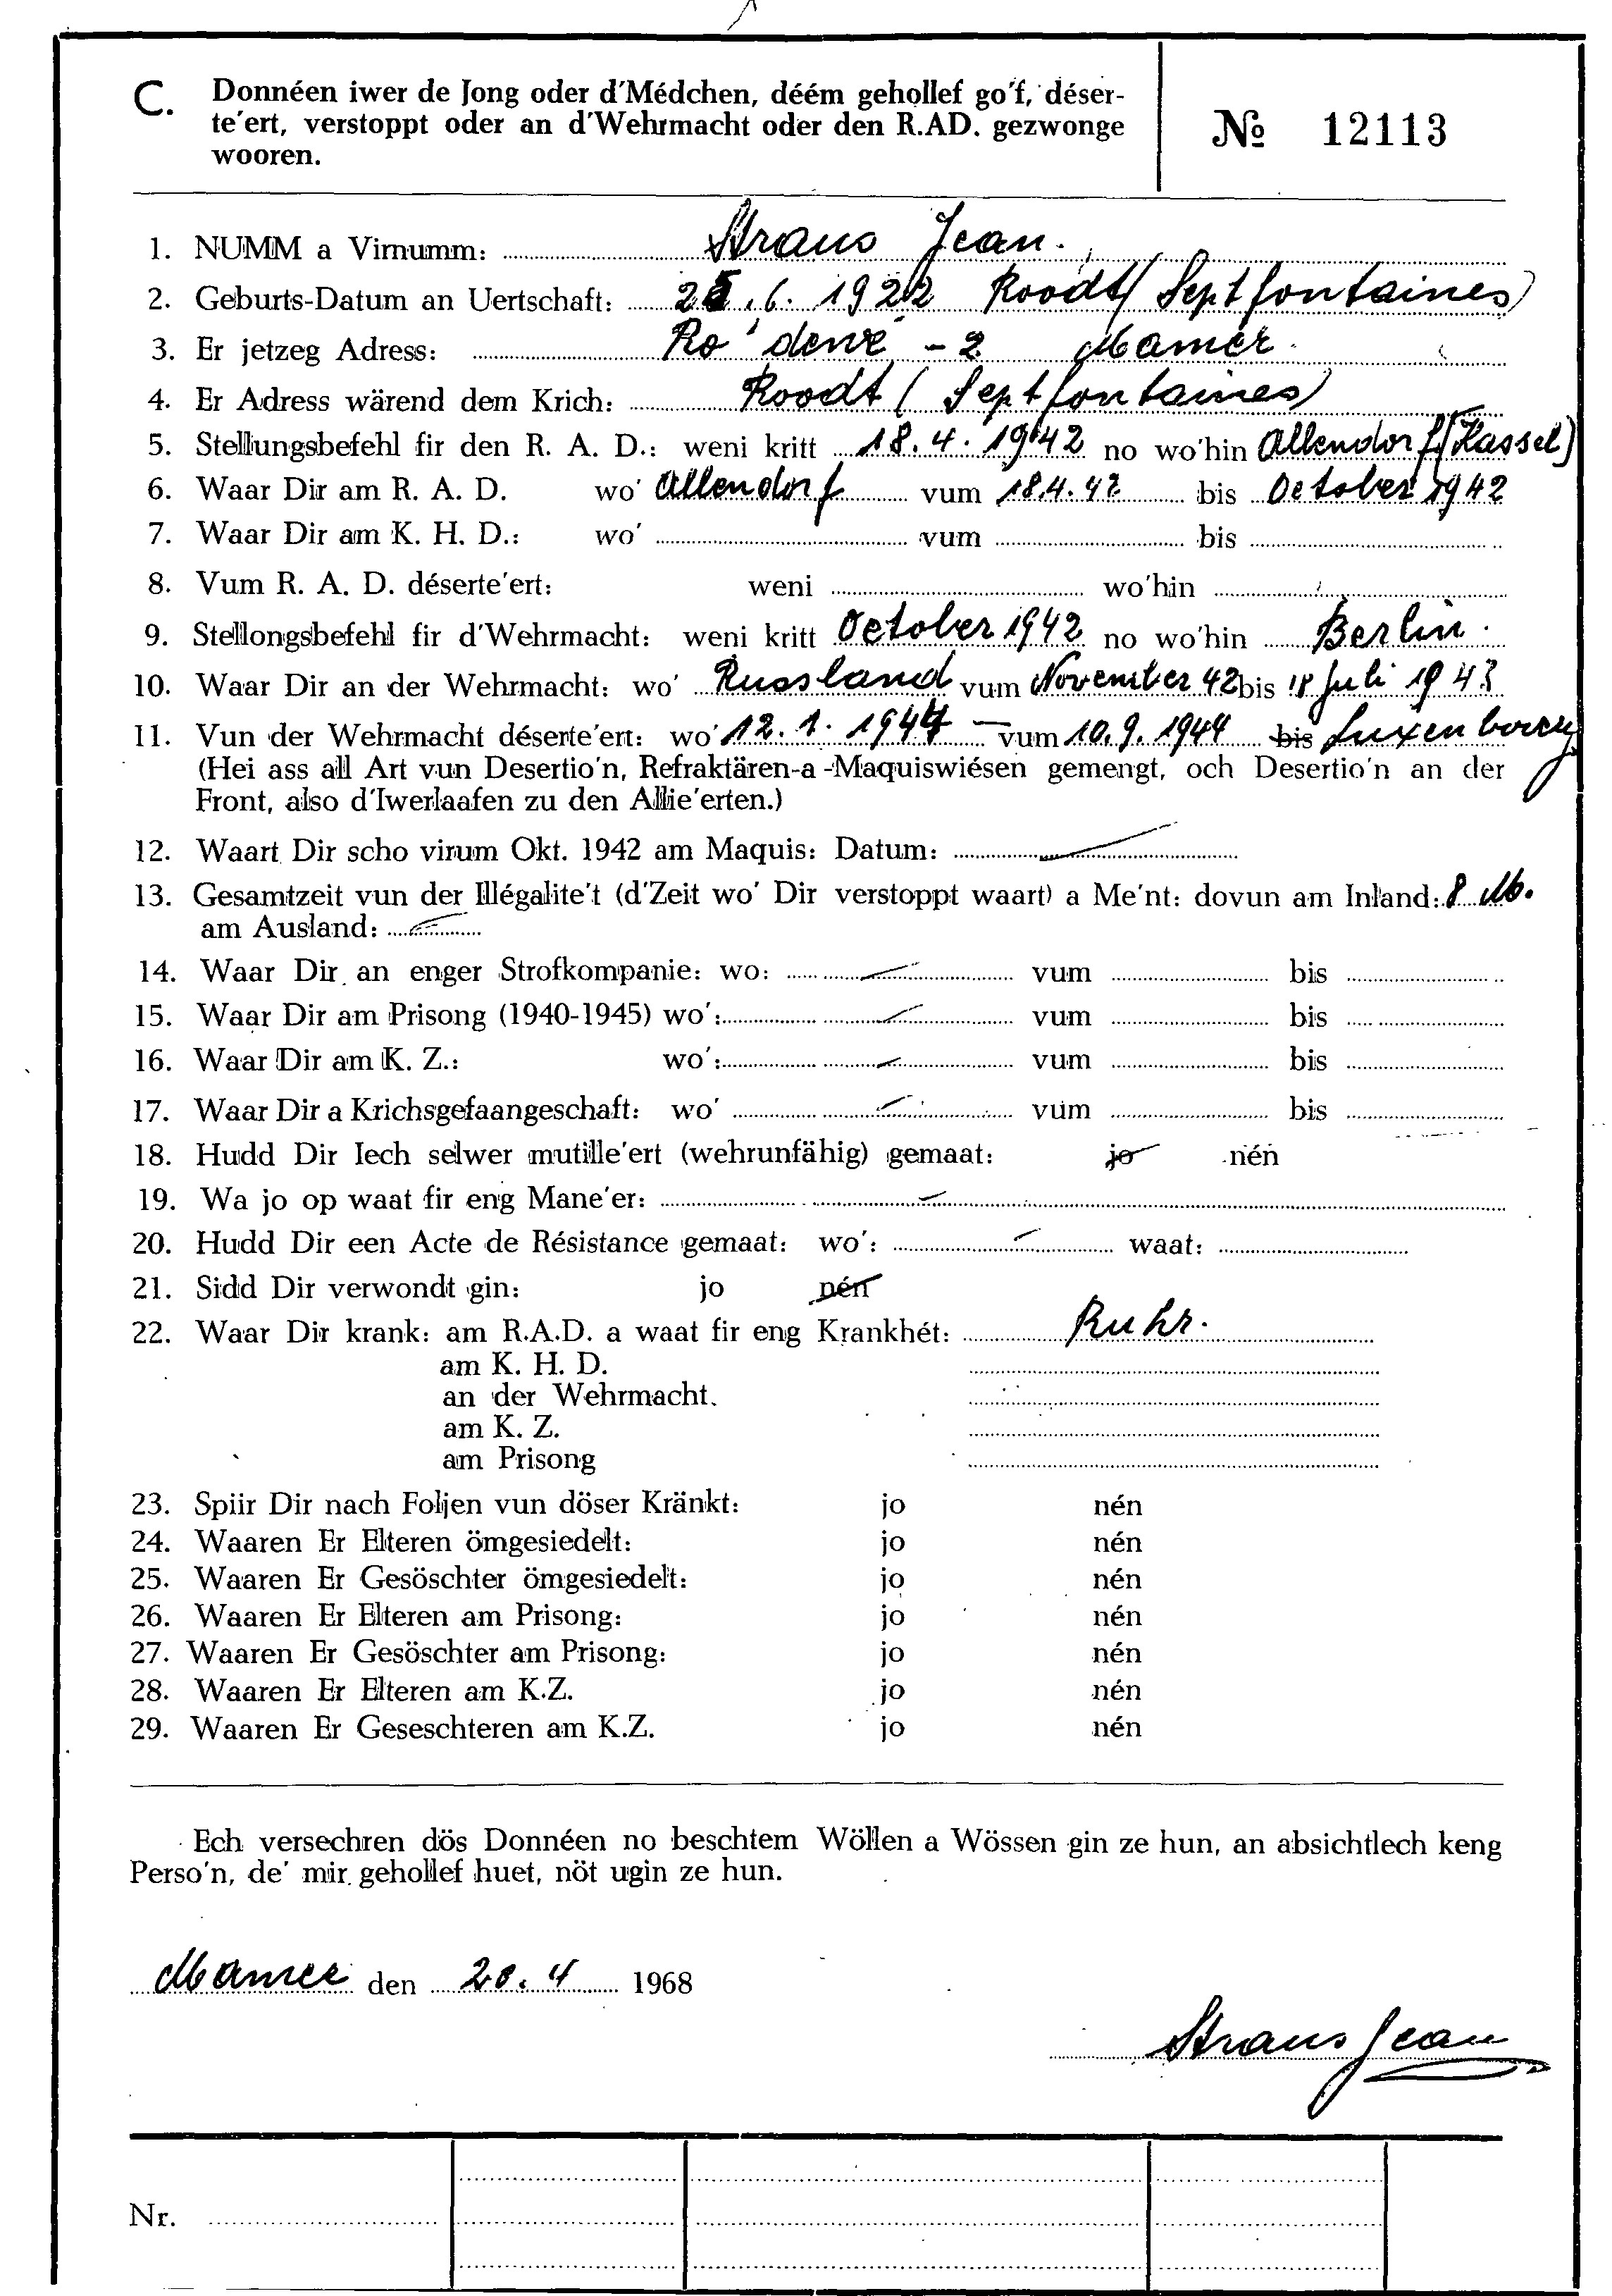 C. Donnéen iwer de Jong oder d'Médchen, déém gehollef go'f, déser-
te'ert, verstoppt oder an d'Wehrmacht oder den R.AD. gezwonge
wooren.
№ 12113
1. NUMM a Virnumm: Straus Jean.
2. Geburts-Datum an Uertschaft: 25.6. 1922 Roodt (Septfontaines)
3. Er jetzeg Adress: - 2 Mamer.
4. Er Adress wärend dem Krich: Roodt (Septfontaines)
5. Stellungsbefehl fir den R. A. D.: weni kritt 18.4.1942 no wo'hin Allendorf (Kassel)
6. Waar Dir am R. A. D. wo' Allendorf vum 18.4.42 bis October 1942
7. Waar Dir am K. H. D.: wo' vum bis
8. Vum R. A. D. déserte'ert: weni wo'hin
9. Stellongsbefehl fir d'Wehrmacht: weni kritt October 1942 no wo'hin Berlin.
10. Waar Dir an der Wehrmacht: wo' Russland vum November 42 bis 18 Juli 1943
11. Vun der Wehrmacht déserte'ert: wo' 12.1.1944 — vum 10.9.1944 bis Luxenbourg
(Hei ass all Art vun Desertio'n, Refraktären-a -Maquiswiésen gemengt, och Desertio'n an der
Front, also d'Iwerlaafen zu den Allie'erten.)
12. Waart Dir scho virum Okt. 1942 am Maquis: Datum:
13. Gesamtzeit vun der Illégalite't (d'Zeit wo' Dir verstoppt waart) a Me'nt: dovun am Inland: 8 Mo.
am Ausland:
14. Waar Dir an enger Strofkompanie: wo: vum bis
15. Waar Dir am Prisong (1940-1945) wo': vum bis
16. Waar Dir am K. Z.: wo': vum bis
17. Waar Dir a Krichsgefaangeschaft: wo' vum bis
18. Hudd Dir Iech selwer mutille'ert (wehrunfähig) gemaat: jo nén
19. Wa jo op waat fir eng Mane'er:
20. Hudd Dir een Acte de Résistance gemaat: wo': waat:
21. Sidd Dir verwondt gin: jo nén
22. Waar Dir krank: am R.A.D. a waat fir eng Krankhét: Ruhr.
am K. H. D.
an der Wehrmacht.
am K. Z.
am Prisong
23. Spiir Dir nach Foljen vun döser Kränkt: jo nén
24. Waaren Er Elteren ömgesiedelt: jo nén
25. Waaren Er Gesöschter ömgesiedelt: jo nén
26. Waaren Er Elteren am Prisong: jo nén
27. Waaren Er Gesöschter am Prisong: jo nén
28. Waaren Er Elteren am K.Z. jo nén
29. Waaren Er Geseschteren am K.Z. jo nén
Ech versechren dös Donnéen no beschtem Wöllen a Wössen gin ze hun, an absichtlech keng
Perso'n, de' mir gehollef huet, nöt ugin ze hun.
Mamer den 20.4 1968
Straus Jean
Nr.